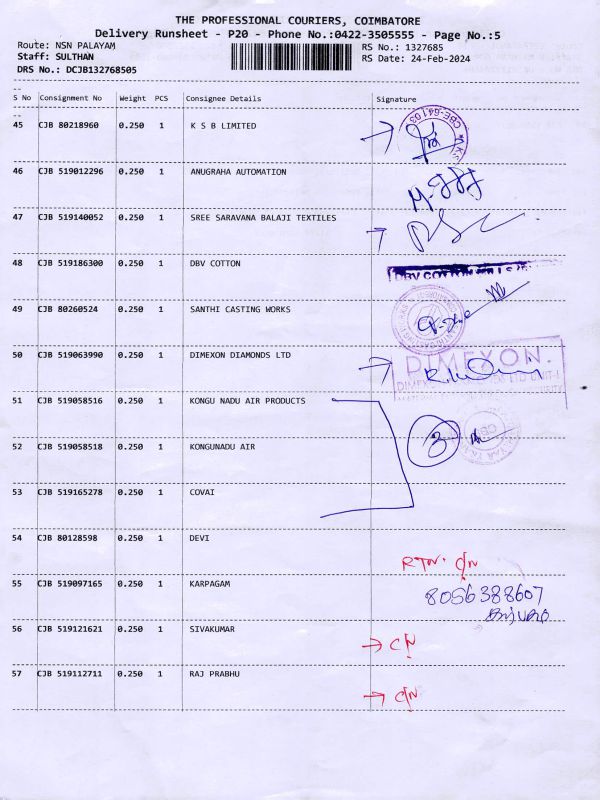 THE PROFESSIONAL COURIERS, COIMBATORE
Delivery Runsheet - P20 - Phone No.:0422-3505555 - Page No.:5
Route: NSN PALAYAM RS No.: 1327685
Staff: SULTHAN RS Date: 24-Feb-2024
DRS No.: DCJB132768505
S No Consignment No Weight PCS Consignee Details Signature
45 CJB 80218960 0.250 1 K S B LIMITED
CBE-641103
46 CJB 519012296 0.250 1 ANUGRAHA AUTOMATION
47 CJB 519140052 0.250 1 SREE SARAVANA BALAJI TEXTILES
48 CJB 519186300 0.250 1 DBV COTTON
DBV COTTON MILLS
49 CJB 80260524 0.250 1 SANTHI CASTING WORKS
50 CJB 519063990 0.250 1 DIMEXON DIAMONDS LTD
DIMEXON.
51 CJB 519058516 0.250 1 KONGU NADU AIR PRODUCTS
52 CJB 519058518 0.250 1 KONGUNADU AIR
3
53 CJB 519165278 0.250 1 COVAI
54 CJB 80128598 0.250 1 DEVI
RTN. C/N
55 CJB 519097165 0.250 1 KARPAGAM
8056388607
56 CJB 519121621 0.250 1 SIVAKUMAR
C/N
57 CJB 519112711 0.250 1 RAJ PRABHU
C/N